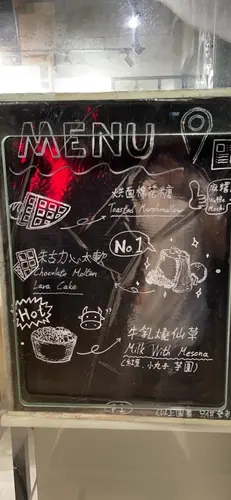 MENU
烘面棉花糖
Toasted Marshmallow
麻糬
Waffle
Mochi
No.1
朱古力心太軟
Chocolate Molten
Lava Cake
Hot
牛乳燒仙草
Milk With Mesona
(紅豆、小丸子、芋圓)